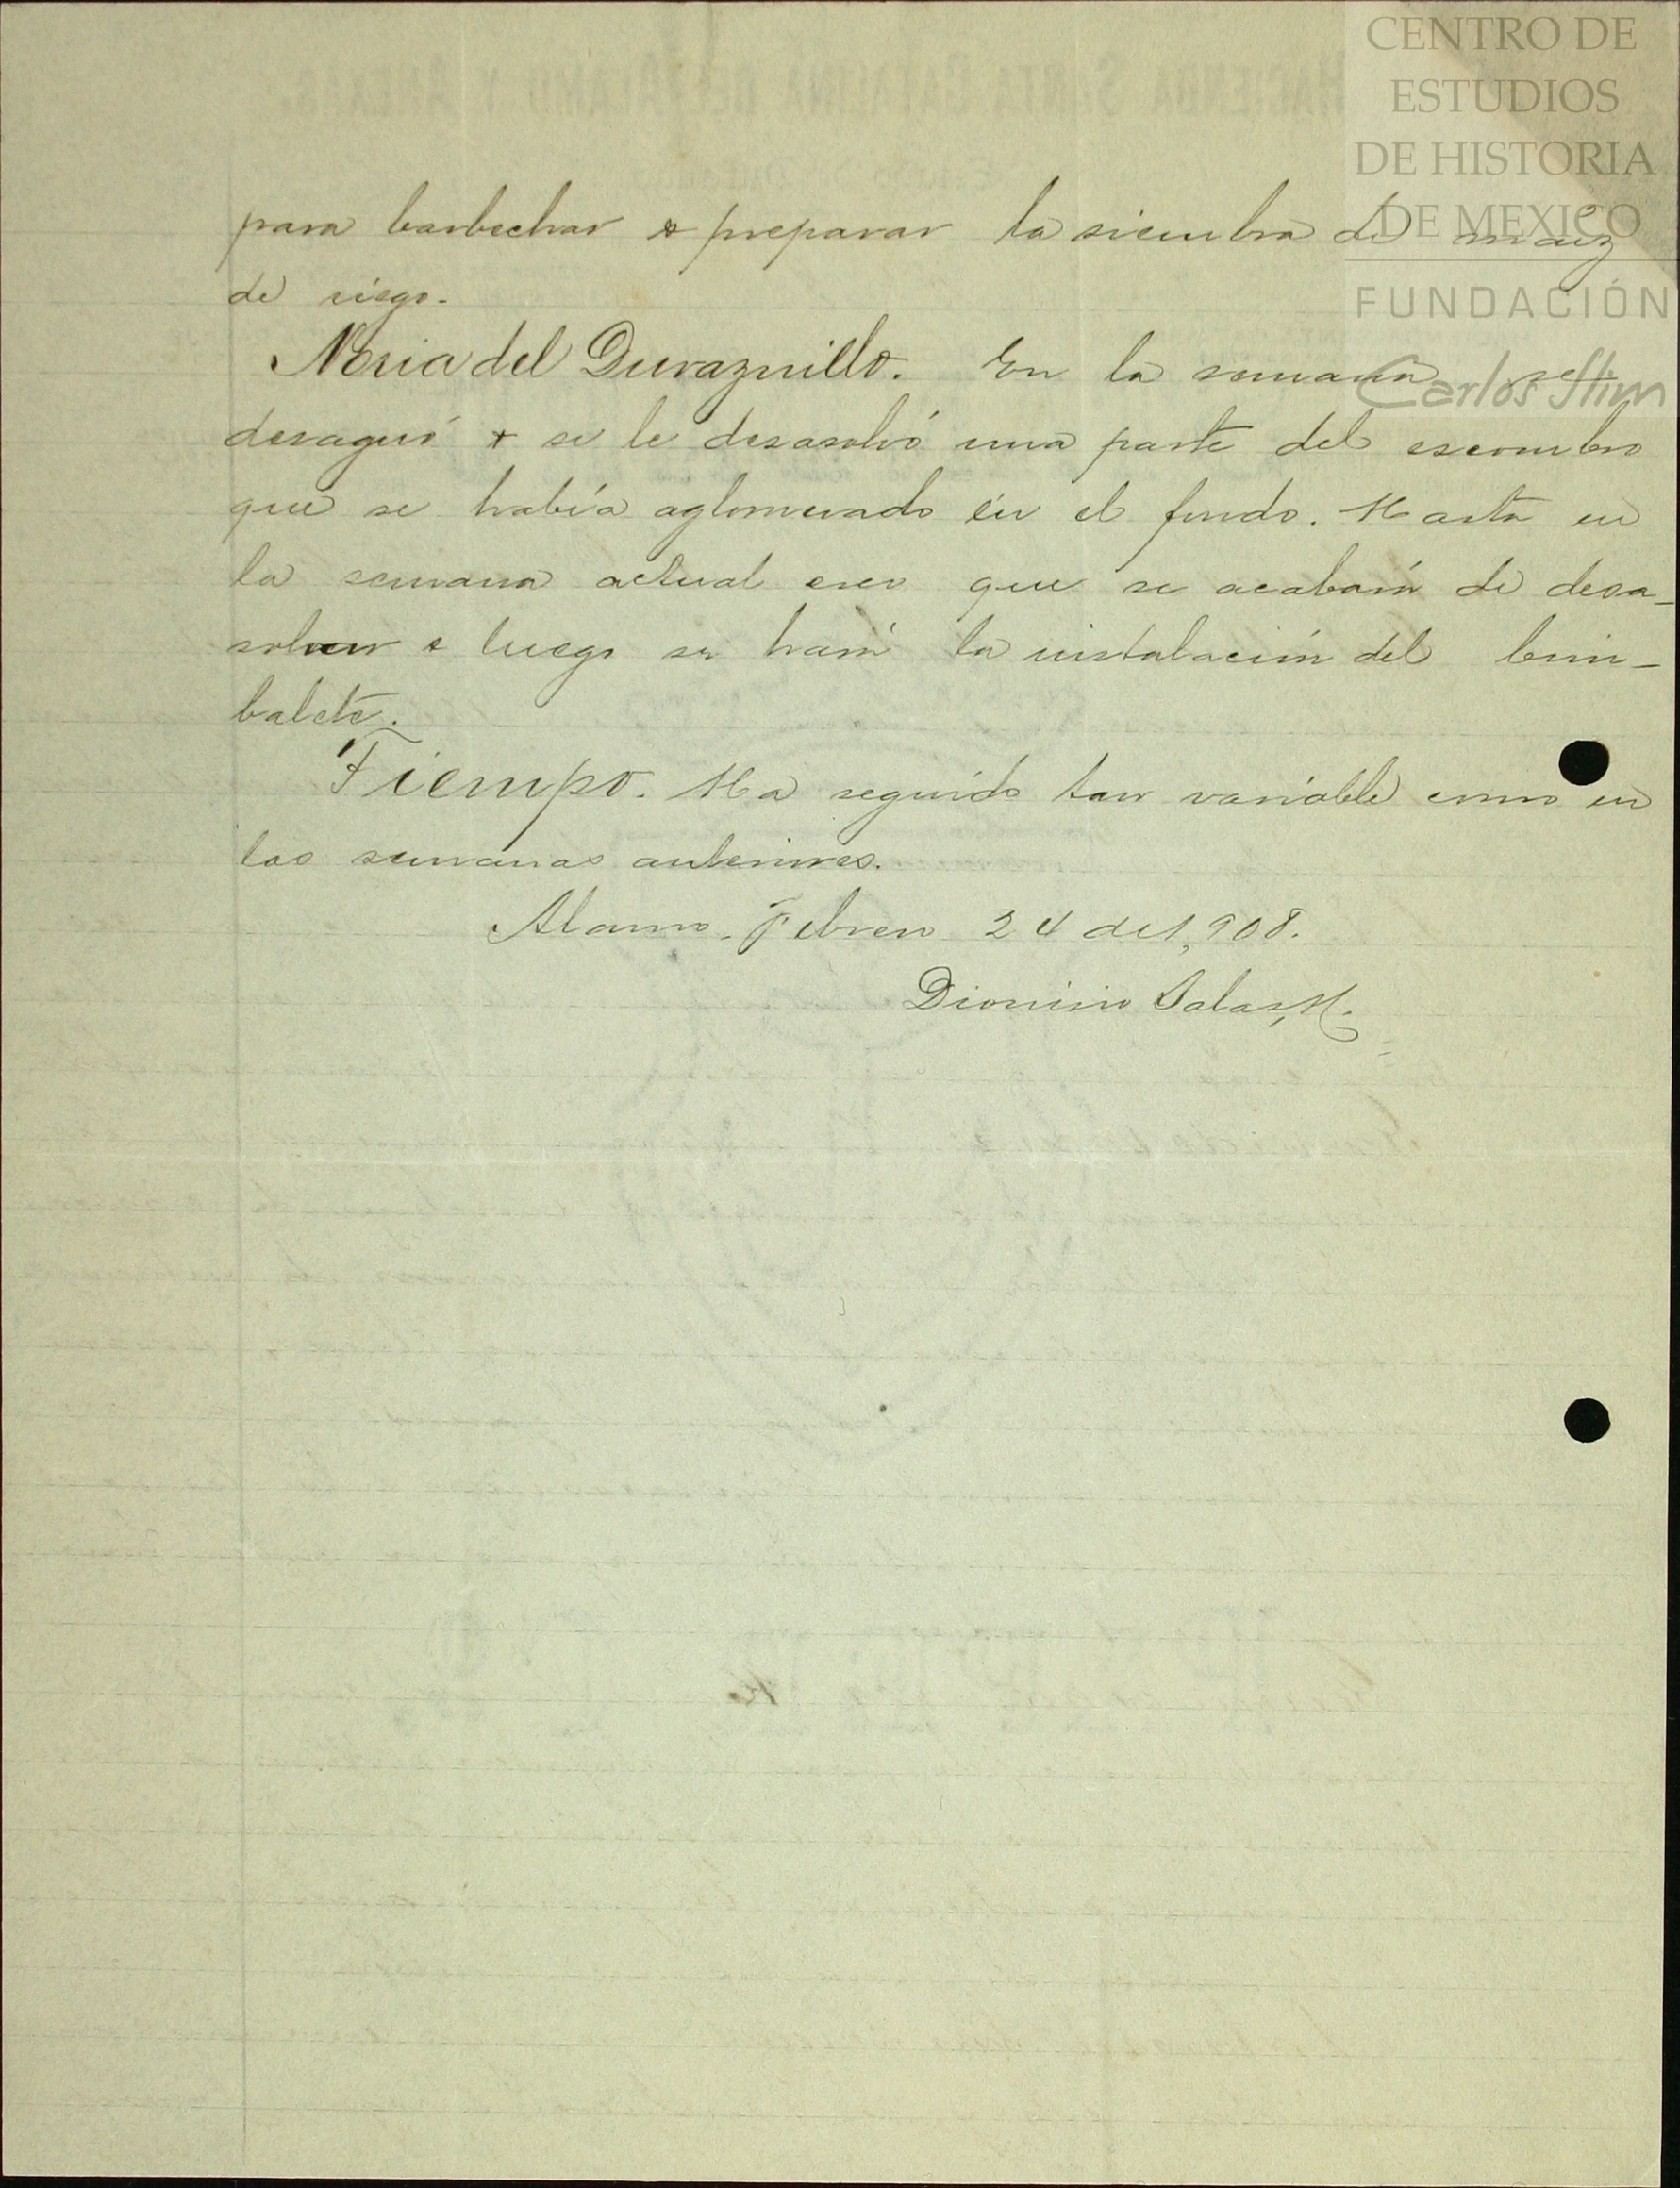 CENTRO DE
ESTUDIOS
DE HISTORIA
DE MEXICO
FUNDACIÓN
Carlos Slim
para barbechar & preparar la siembra de maíz
de riego.
Noria del Duraznillo. En la semana se
desaguó & se le desasolvó una parte del escombro
que se había aglomerado en el fondo. Hasta en
la semana actual creo que se acabará de desa-
solvar & luego se hará la instalación del bim-
balete.
Tiempo. Ha seguido tan variable como en
las semanas anteriores.
Alamo. Febrero 24 de 1,908.
Dionisio Salas, H.